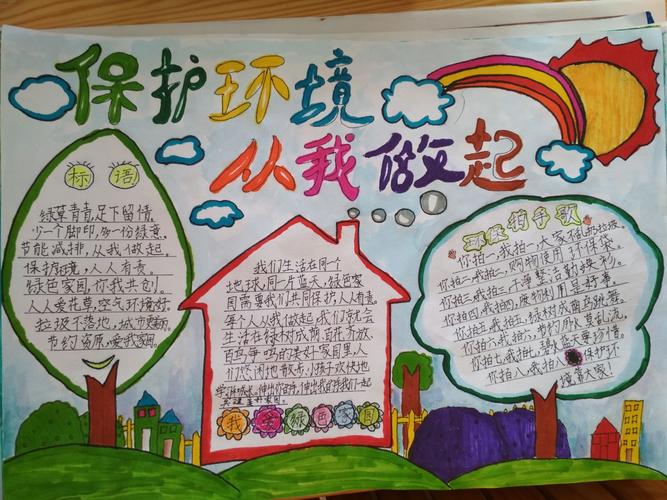 保护环境
从我做起
标语
绿草青青,足下留情
少一个脚印,多一份绿意,
节能减排,从我做起。
保护环境,人人有责。
绿色家园你我共创。
人人爱花草,空气环境好,
垃圾不落地,城市更美丽
节约资源,爱我家园。
我们生活在同一个
地球,同一片蓝天,绿色家
园需要我们共同保护,人人有责。
每个人从我做起,我们就会
生活在绿树成荫,百花齐放,
百鸟争鸣的美好家园里,人
们悠闲地散步,小孩子欢快地
我爱绿色家园
环保拍手歌
你拍一,我拍一,大家
你拍二,我拍二,购物使用环保袋。
你拍三,我拍三,干净整洁
你拍四,我拍四,废物利用是好事。
你拍五,我拍五,绿树成
你拍六,我拍六,节约
你拍七,我拍
你拍八,我拍八 保护环
境靠大家!